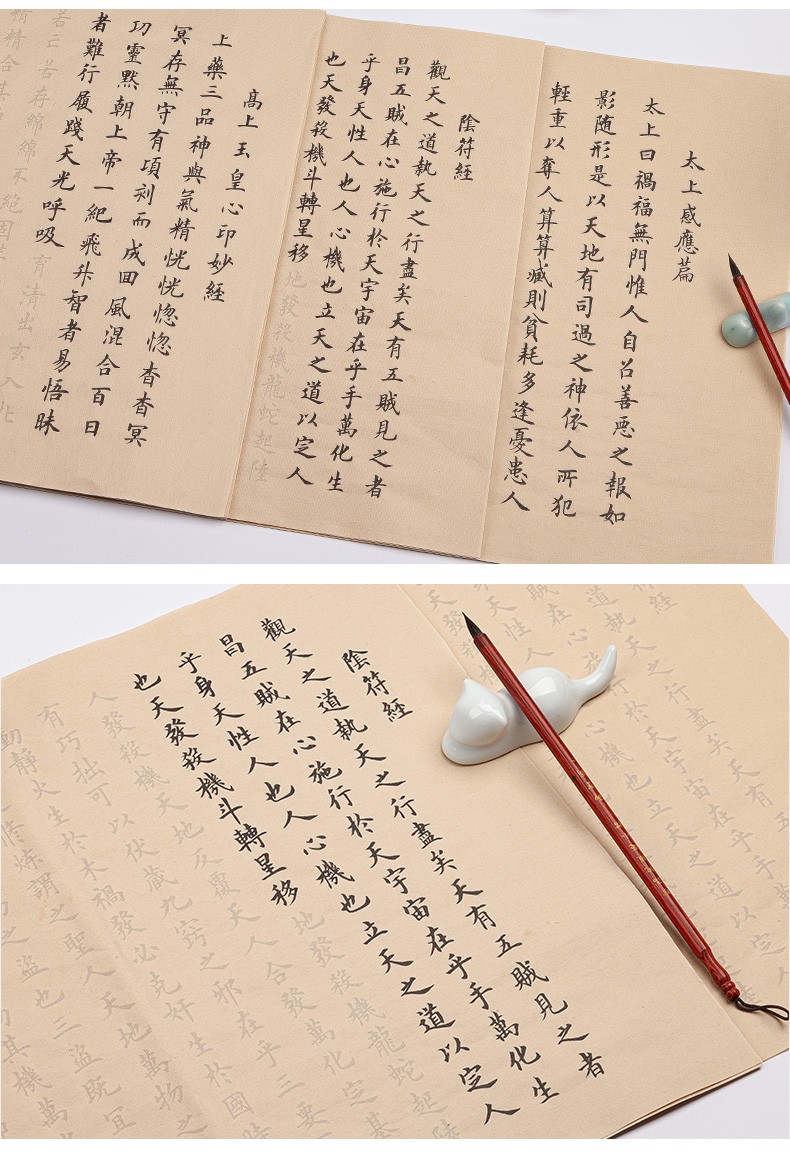 太上感應篇
太上曰禍福無門惟人自召善惡之報如
影随形是以天地有司過之神依人所犯
輕重以奪人算算減則貧耗多逢憂患人
陰符經
觀天之道執天之行盡矣天有五賊見之者
昌五賊在心施行於天宇宙在乎手萬化生
乎身天性人也人心機也立天之道以定人
也天發殺機斗轉星移地發殺機龍蛇起陸
高上玉皇心印妙經
上藥三品神與氣精恍恍惚惚杳杳冥
冥存無守有項刻而成回風混合百日
功靈黙朝上帝一紀飛升智者易悟昧
者難行履踐天光呼吸育清出玄入牝
若亡若存綿綿不絕固
精合其
陰符經
觀天之道執天之行盡矣天有五賊見之者
昌五賊在心施行於天宇宙在乎手萬化生
乎身天性人也人心機也立天之道以定人
也天發殺機斗轉星移地發殺機龍蛇起陸
人發殺機天地反覆天人合發萬化定基
有巧拙可以伏藏九竅之邪在乎三要
動靜火生於木禍發必克奸生於國時
修煉謂之聖人天地萬物之
之盜也三盜既宜
其機萬